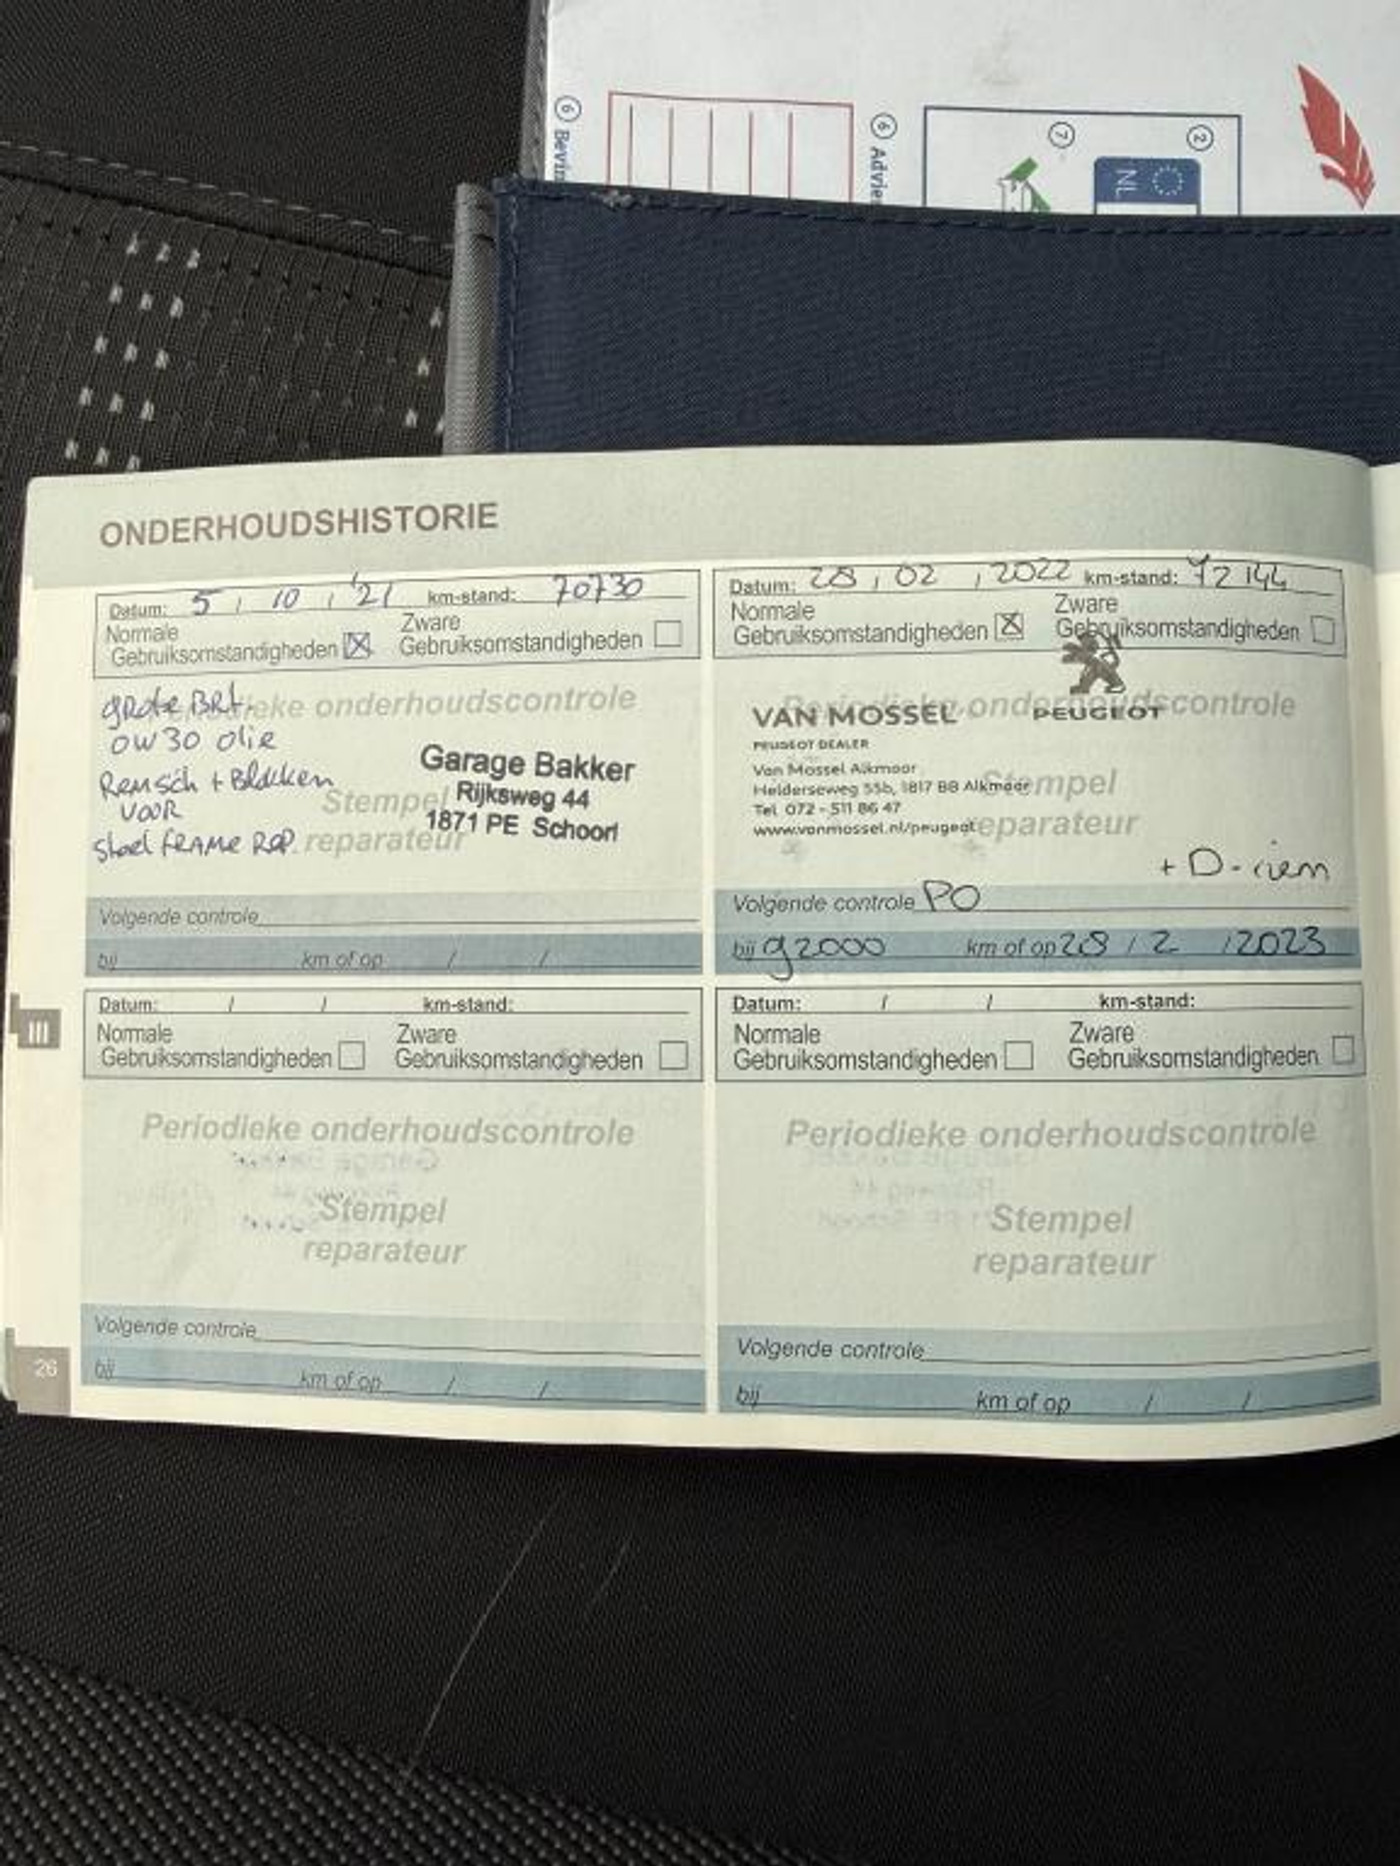 6 Bevin
6 Advie
7
2
NL
ONDERHOUDSHISTORIE
Datum: 5 / 10 / '21 km-stand: 70730
Normale Gebruiksomstandigheden Zware Gebruiksomstandigheden
grote BRT.
OW30 olie
Remsch + Blokken
VOOR
Periodieke onderhoudscontrole
Stempel
reparateur
Garage Bakker
Rijksweg 44
1871 PE Schoorl
Volgende controle
bij km of op / /
Datum: 28 / 02 / 2022 km-stand: 72144
Normale Gebruiksomstandigheden Zware Gebruiksomstandigheden
Periodieke onderhoudscontrole
VAN MOSSEL PEUGEOT
PEUGEOT DEALER
Van Mossel Alkmaar
Helderseweg 55b, 1817 BB Alkmaar
Tel. 072 - 511 86 47
www.vanmossel.nl/peugeot
Stempel
reparateur
+ D-riem
Volgende controle PO
bij 92000 km of op 28 / 2 / 2023
III
Datum: / / km-stand:
Normale Gebruiksomstandigheden Zware Gebruiksomstandigheden
Periodieke onderhoudscontrole
Stempel
reparateur
Volgende controle
bij km of op / /
Datum: / / km-stand:
Normale Gebruiksomstandigheden Zware Gebruiksomstandigheden
Periodieke onderhoudscontrole
Stempel
reparateur
Volgende controle
bij km of op / /
26